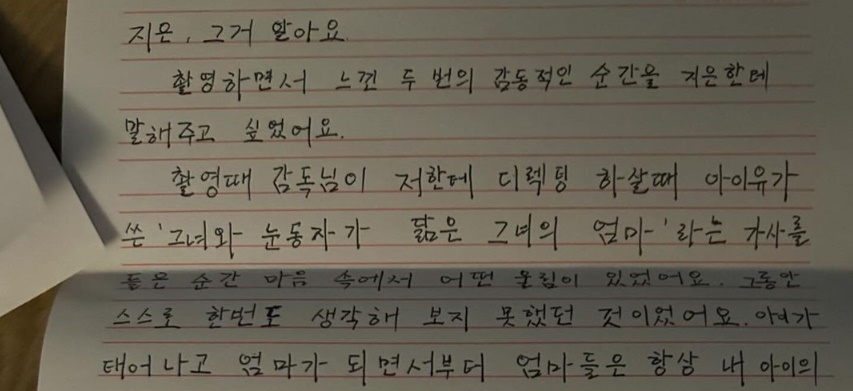 지은, 그거 알아요.
촬영하면서 느낀 두 번의 감동적인 순간을 지은한테
말해주고 싶었어요.
촬영때 감독님이 저한테 디렉팅 하살때 아이유가
쓴 '그녀와 눈동자가 닮은 그녀의 엄마'라는 가사를
들은 순간 마음 속에서 어떤 울림이 있었어요. 그동안
스스로 한번도 생각해 보지 못했던 것이었어요. 아이가
태어나고 엄마가 되면서부터 엄마들은 항상 내 아이의